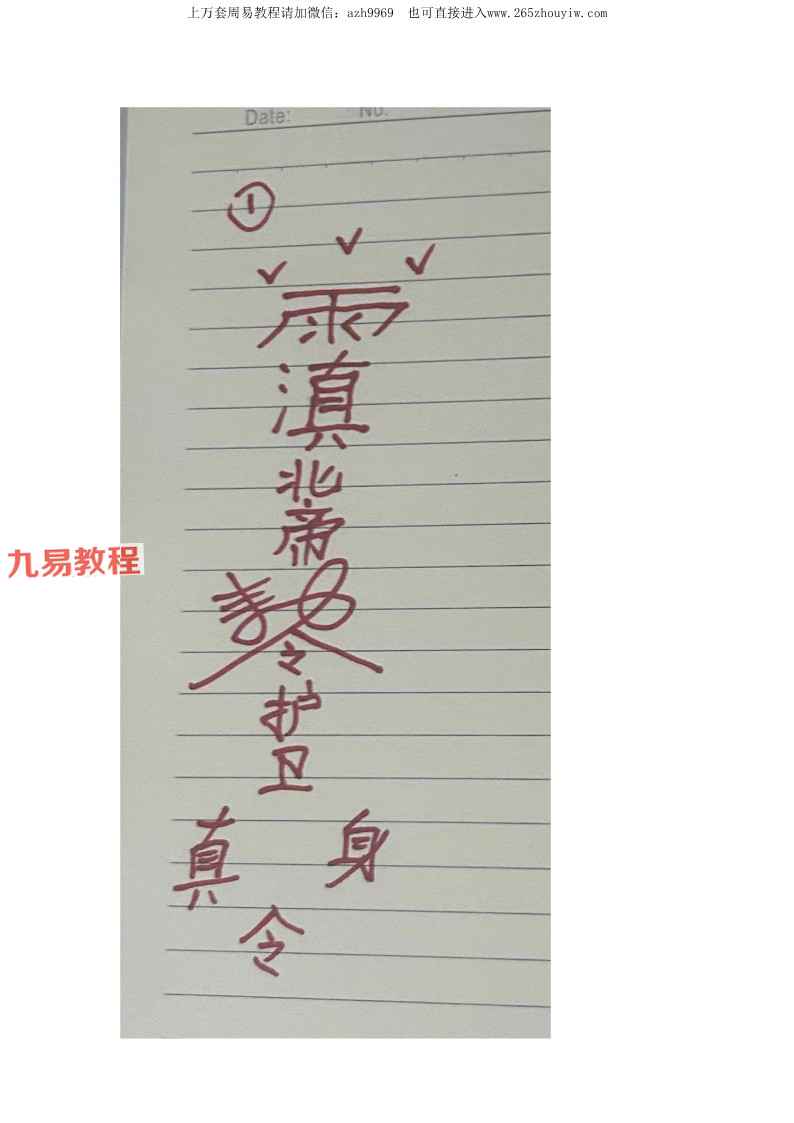 上万套周易教程请加微信：azh9969 也可直接进入www.265zhouyiw.com
Date: No.
①
雨
滇
北
帝
令
护
卫
真 身
令
九易教程